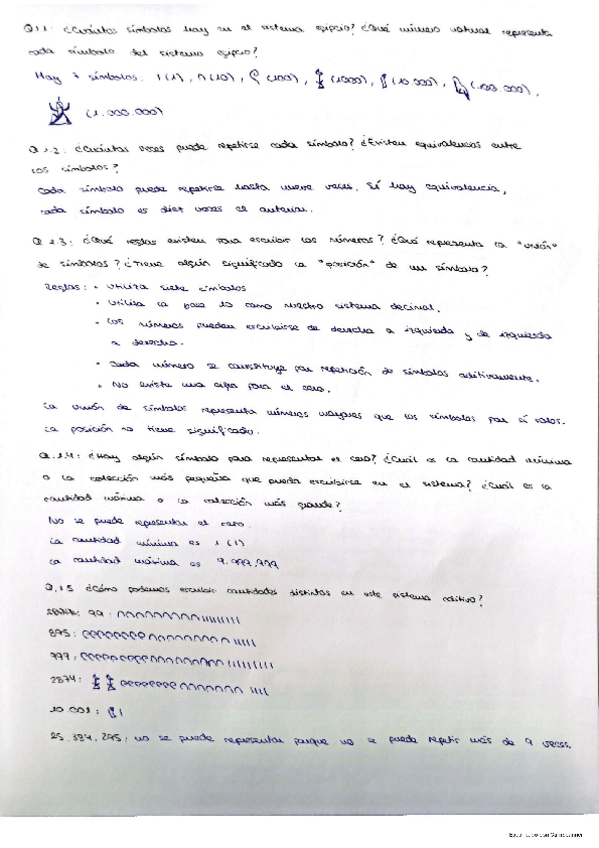 Q.1.1: ¿Cuántos símbolos hay en el sistema egipcio? ¿Qué número natural representa
cada símbolo del sistema egipcio?
Hay 7 símbolos: (1), (10), (100), (1000), (10.000), (100.000),
(1.000.000)
Q.1.2: ¿Cuántas veces puede repetirse cada símbolo? ¿Existen equivalencias entre
los símbolos?
Cada símbolo puede repetirse hasta nueve veces. Sí hay equivalencia,
cada símbolo es diez veces el anterior.
Q.1.3: ¿Qué reglas existen para escribir los números? ¿Qué representa la "unión"
de símbolos? ¿Tiene algún significado la "posición" de un símbolo?
Reglas: • Utiliza siete símbolos
• Utiliza la base 10 como nuestro sistema decimal.
• Los números pueden escribirse de derecha a izquierda y de izquierda
a derecha.
• Cada número se constituye por repetición de símbolos aditivamente.
• No existe una cifra para el cero.
La unión de símbolos representa números mayores que los símbolos por sí solos.
La posición no tiene significado.
Q.1.4: ¿Hay algún símbolo para representar el cero? ¿Cuál es la cantidad mínima
o la colección más pequeña que pueda escribirse en el sistema? ¿Cuál es la
cantidad máxima o la colección más grande?
No se puede representar el cero.
La cantidad mínima es 1 (1)
La cantidad máxima es 9.999.999
Q.1.5 ¿Cómo podemos escribir cantidades distintas en este sistema aditivo?
99:
895:
999:
2874:
10 001:
25.387.295: no se puede representar porque no se puede repetir más de 9 veces.